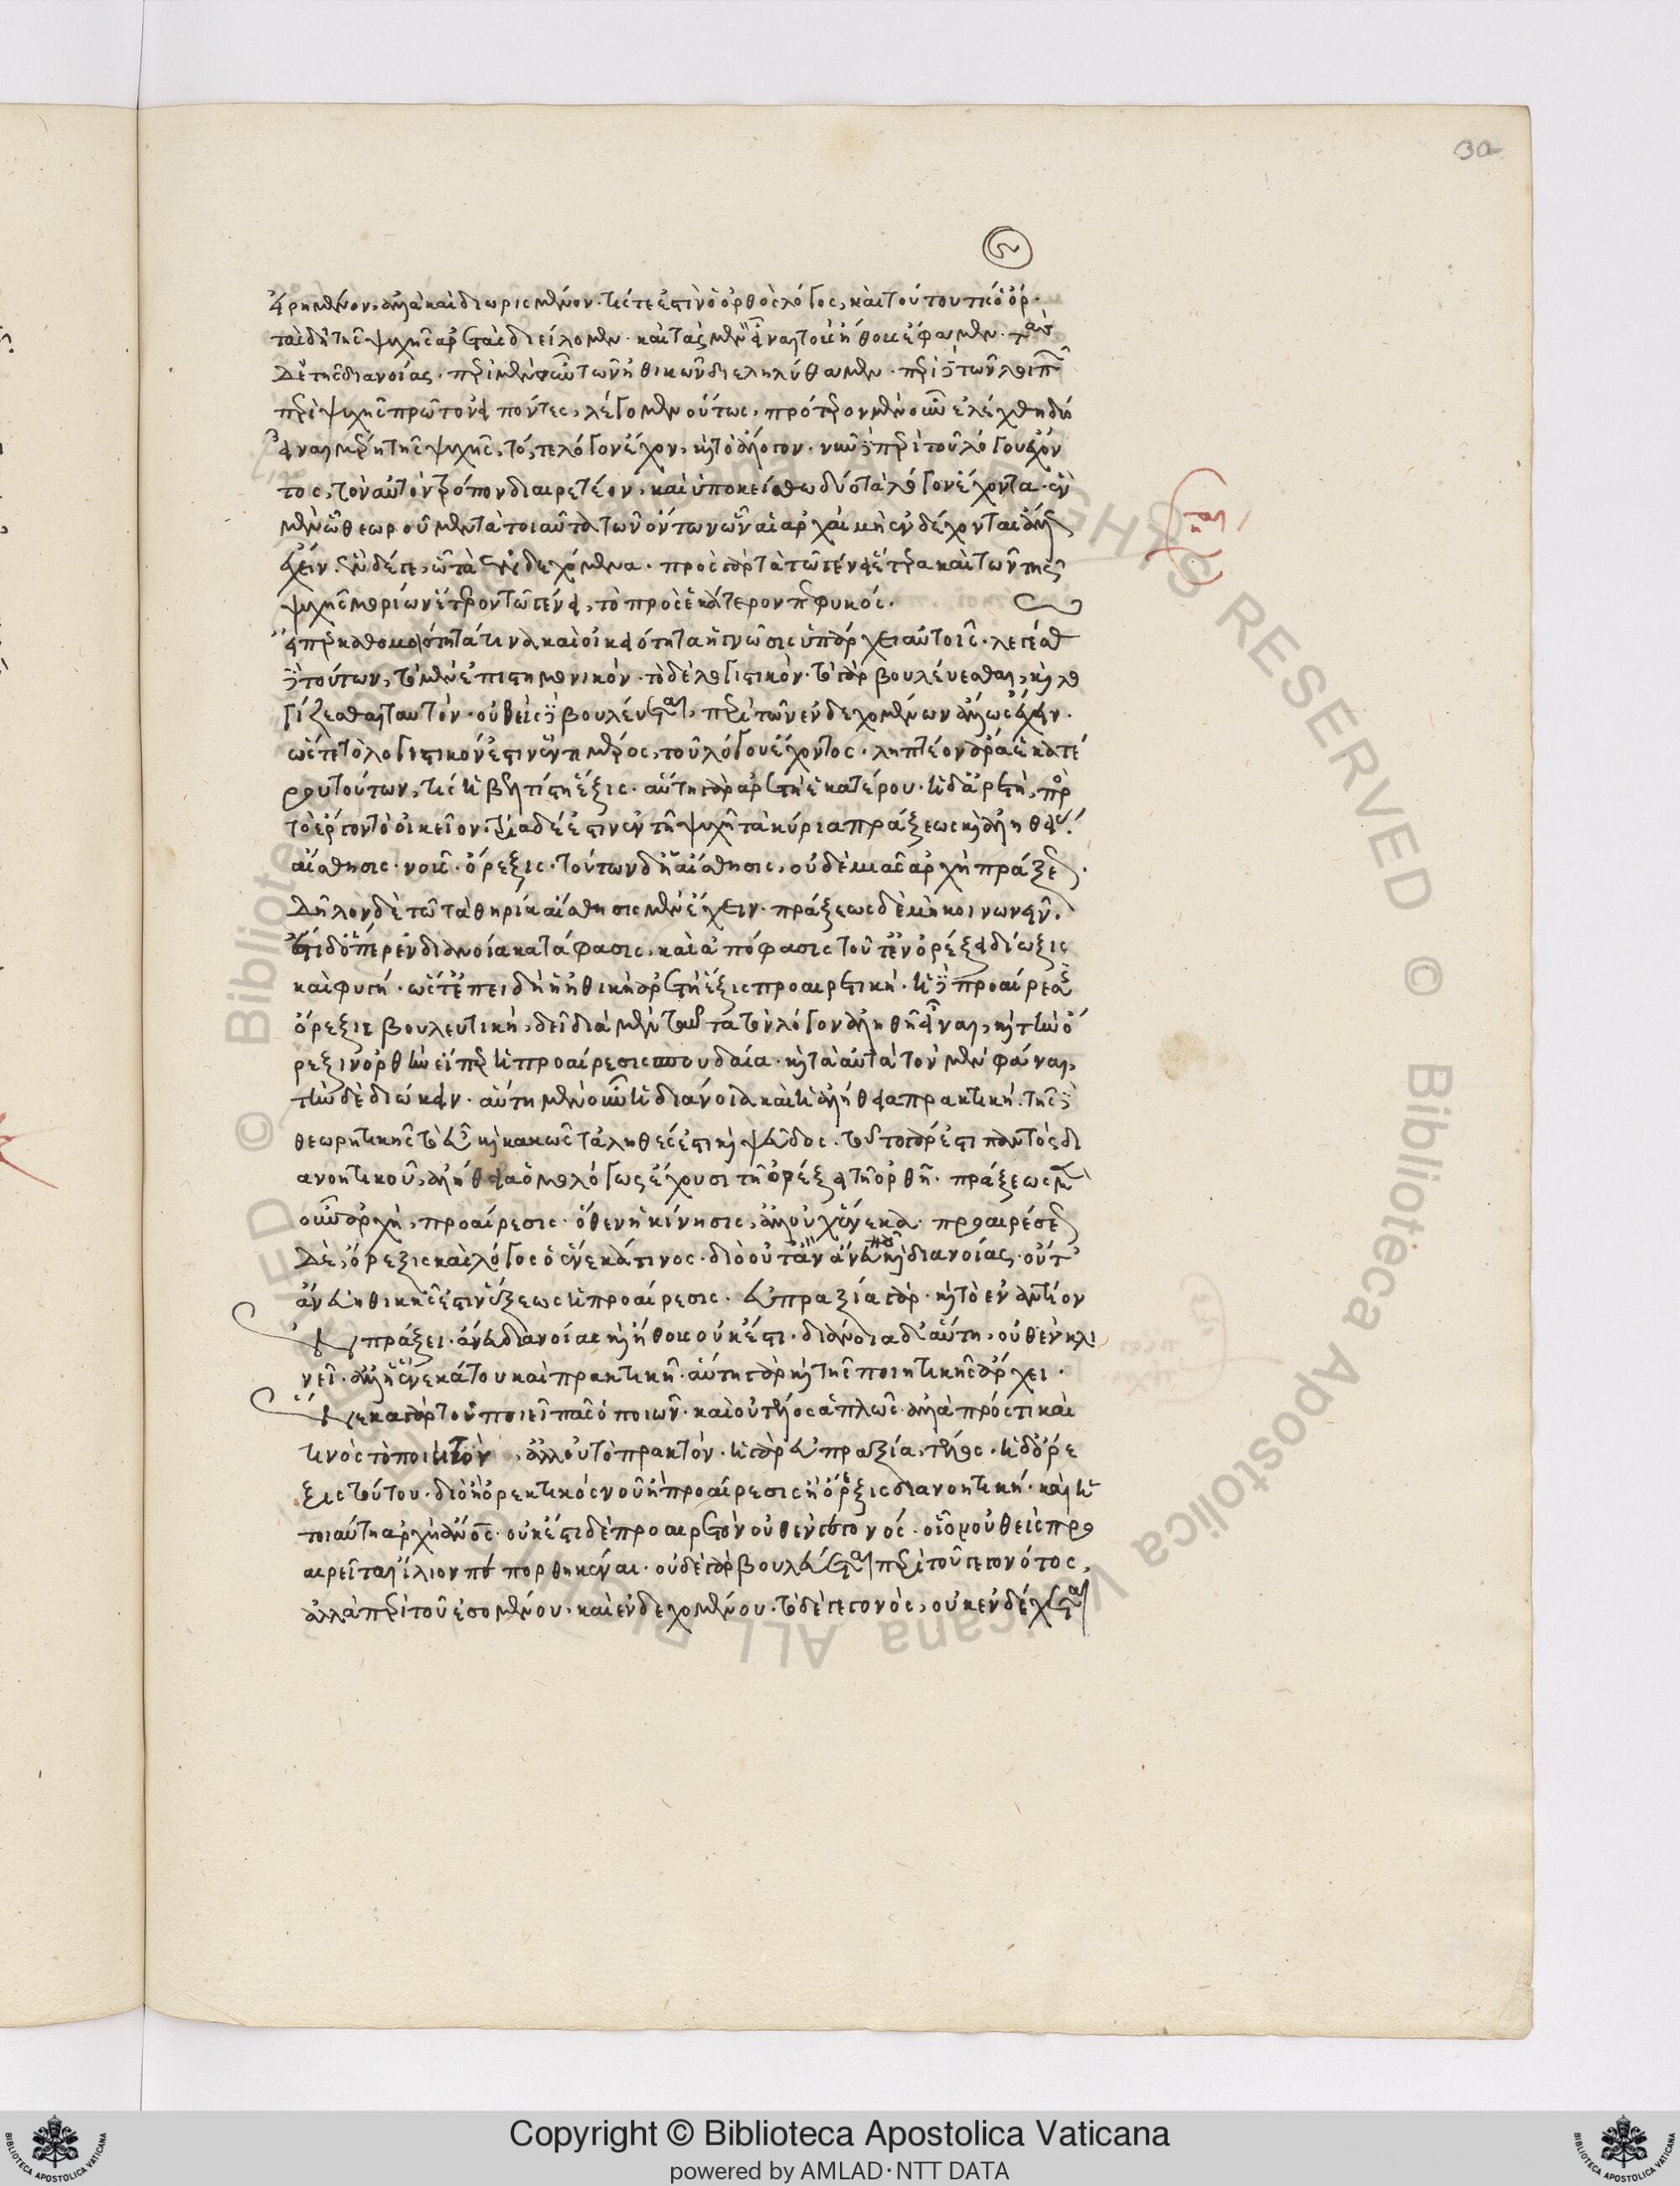 εἰρημένον, ἀλλὰ καὶ διωρισμένον· τίς τε ἐστὶν ὁ ὀρθὸς λόγος, καὶ τούτου τίς ὁ ὅρ·
τὰς δὴ τῆς ψυχῆς ἀρετὰς διειλόμενοι· καὶ τὰς μὲν εἶναι τοῦ ἤθους ἔφαμεν· τὰς
δὲ τῆς διανοίας· περὶ μὲν οὖν τῶν ἠθικῶν διεληλύθαμεν· περὶ δὲ τῶν λοιπῶν
περὶ ψυχῆς πρῶτον εἰπόντες, λέγομεν οὕτως, πρότερον μὲν οὖν ἐλέχθη δύ
εἶναι μέρη τῆς ψυχῆς, τό, τε λόγον ἔχον, καὶ τὸ ἄλογον· νῦν δὲ περὶ τοῦ λόγου ἔχον
τος, τὸν αὐτὸν τρόπον διαιρετέον, καὶ ὑποκείσθω δύο τὰ λόγον ἔχοντα· ἓν
μὲν ᾧ θεωροῦμεν τὰ τοιαῦτα τῶν ὄντων ὧν αἱ ἀρχαὶ μὴ ἐνδέχονται ἄλλως
ἔχειν. ἓν δέ τε, ᾧ τὰ ἐνδεχόμενα· πρὸς γὰρ τὰ τῷ γένει ἕτερα καὶ τῶν τῆς
ψυχῆς μορίων ἕτερον τῷ γένει, τὸ πρὸς ἑκάτερον πεφυκός·
εἴπερ καθ' ὁμοιότητά τινα καὶ οἰκειότητα ἡ γνῶσις ὑπάρχει αὐτοῖς· λεγέσθω
δὲ τούτων, τὸ μὲν ἐπιστημονικὸν· τὸ δὲ λογιστικὸν· τὸ γὰρ βουλεύεσθαι, καὶ λο
γίζεσθαι ταυτόν· οὐθεὶς δὲ βουλεύεται, περὶ τῶν ἐνδεχομένων ἄλλως ἔχειν·
ὥστε τὸ λογιστικόν ἐστιν ἕν τι μέρος, τοῦ λόγου ἔχοντος· ληπτέον ἄρα ἑκατέ
ρου τούτων, τίς ἡ βελτίστη ἕξις· αὕτη γὰρ ἀρετὴ ἑκατέρου· ἡ δ' ἀρετὴ, πρὸς
τὸ ἔργον τὸ οἰκεῖον· τρία δέ ἐστιν ἐν τῇ ψυχῇ τὰ κύρια πράξεως καὶ ἀληθείας·
αἴσθησις· νοῦς· ὄρεξις· τούτων δ' ἡ αἴσθησις, οὐδεμιᾶς ἀρχὴ πράξεως·
δῆλον δὲ τῷ τὰ θηρία αἴσθησιν μὲν ἔχειν· πράξεως δὲ μὴ κοινωνεῖν.
ἔστι δ' ὅπερ ἐν διανοίᾳ κατάφασις, καὶ ἀπόφασις τοῦτ' ἐν ὀρέξει δίωξις
καὶ φυγή· ὥστ' ἐπειδὴ ἡ ἠθικὴ ἀρετὴ ἕξις προαιρετική· ἡ δὲ προαίρεσις
ὄρεξις βουλευτική, δεῖ διὰ μὲν ταῦτα τὸν λόγον ἀληθῆ εἶναι, καὶ τὴν ὄ
ρεξιν ὀρθὴν εἴπερ ἡ προαίρεσις σπουδαία· καὶ τὰ αὐτὰ τὸν μὲν φάναι,
τὴν δὲ διώκειν· αὕτη μὲν οὖν ἡ διάνοια καὶ ἡ ἀλήθεια πρακτική· τῆς δὲ
θεωρητικῆς τὸ εὖ καὶ κακῶς τἀληθές ἐστι καὶ ψεῦδος· τοῦτο γάρ ἐστι παντὸς δι
ανοητικοῦ, ἀλήθεια ὁμολόγως ἔχουσα τῇ ὀρέξει τῇ ὀρθῇ· πράξεως μὲν
οὖν ἀρχὴ, προαίρεσις· ὅθεν ἡ κίνησις, ἀλλ' οὐχ οὗ ἕνεκα· προαιρέσεως
δὲ, ὄρεξις καὶ λόγος ὁ ἕνεκά τινος· διὸ οὔτ' ἄνευ νοῦ καὶ διανοίας· οὔτ'
ἄνευ ἠθικῆς ἐστιν ἕξεως ἡ προαίρεσις· εὐπραξία γὰρ· καὶ τὸ ἐναντίον
ἐν πράξει· ἄνευ διανοίας καὶ ἤθους οὐκ ἔστι· διάνοια δ' αὕτη, οὐθὲν κι
νεῖ· ἀλλ' ἡ ἕνεκά του καὶ πρακτική· αὕτη γὰρ καὶ τῆς ποιητικῆς ἄρχει·
ἕνεκα γάρ του ποιεῖ πᾶς ὁ ποιῶν· καὶ οὐ τέλος ἁπλῶς· ἀλλὰ πρός τι καὶ
τινὸς τὸ ποιητὸν, ἀλλ' οὐ τὸ πρακτόν· ἡ γὰρ εὐπραξία, τέλος· ἡ δ' ὄρε
ξις τούτου· διὸ ἢ ὀρεκτικὸς νοῦς ἡ προαίρεσις ἢ ὄρεξις διανοητική· καὶ ἡ
τοιαύτη ἀρχὴ ἄνθρωπος· οὐκ ἔστι δὲ προαιρετὸν οὐθὲν γεγονός· οἷον οὐθεὶς προ
αιρεῖται ἴλιον πεπορθηκέναι· οὐδὲ γὰρ βουλεύεται περὶ τοῦ γεγονότος,
ἀλλὰ περὶ τοῦ ἐσομένου, καὶ ἐνδεχομένου· τὸ δὲ γεγονὸς, οὐκ ἐνδέχεται
Copyright © Biblioteca Apostolica Vaticana
powered by AMLAD·NTT DATA